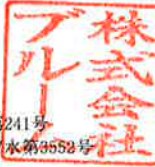 株式会社
ブルー
241号
水第3552号